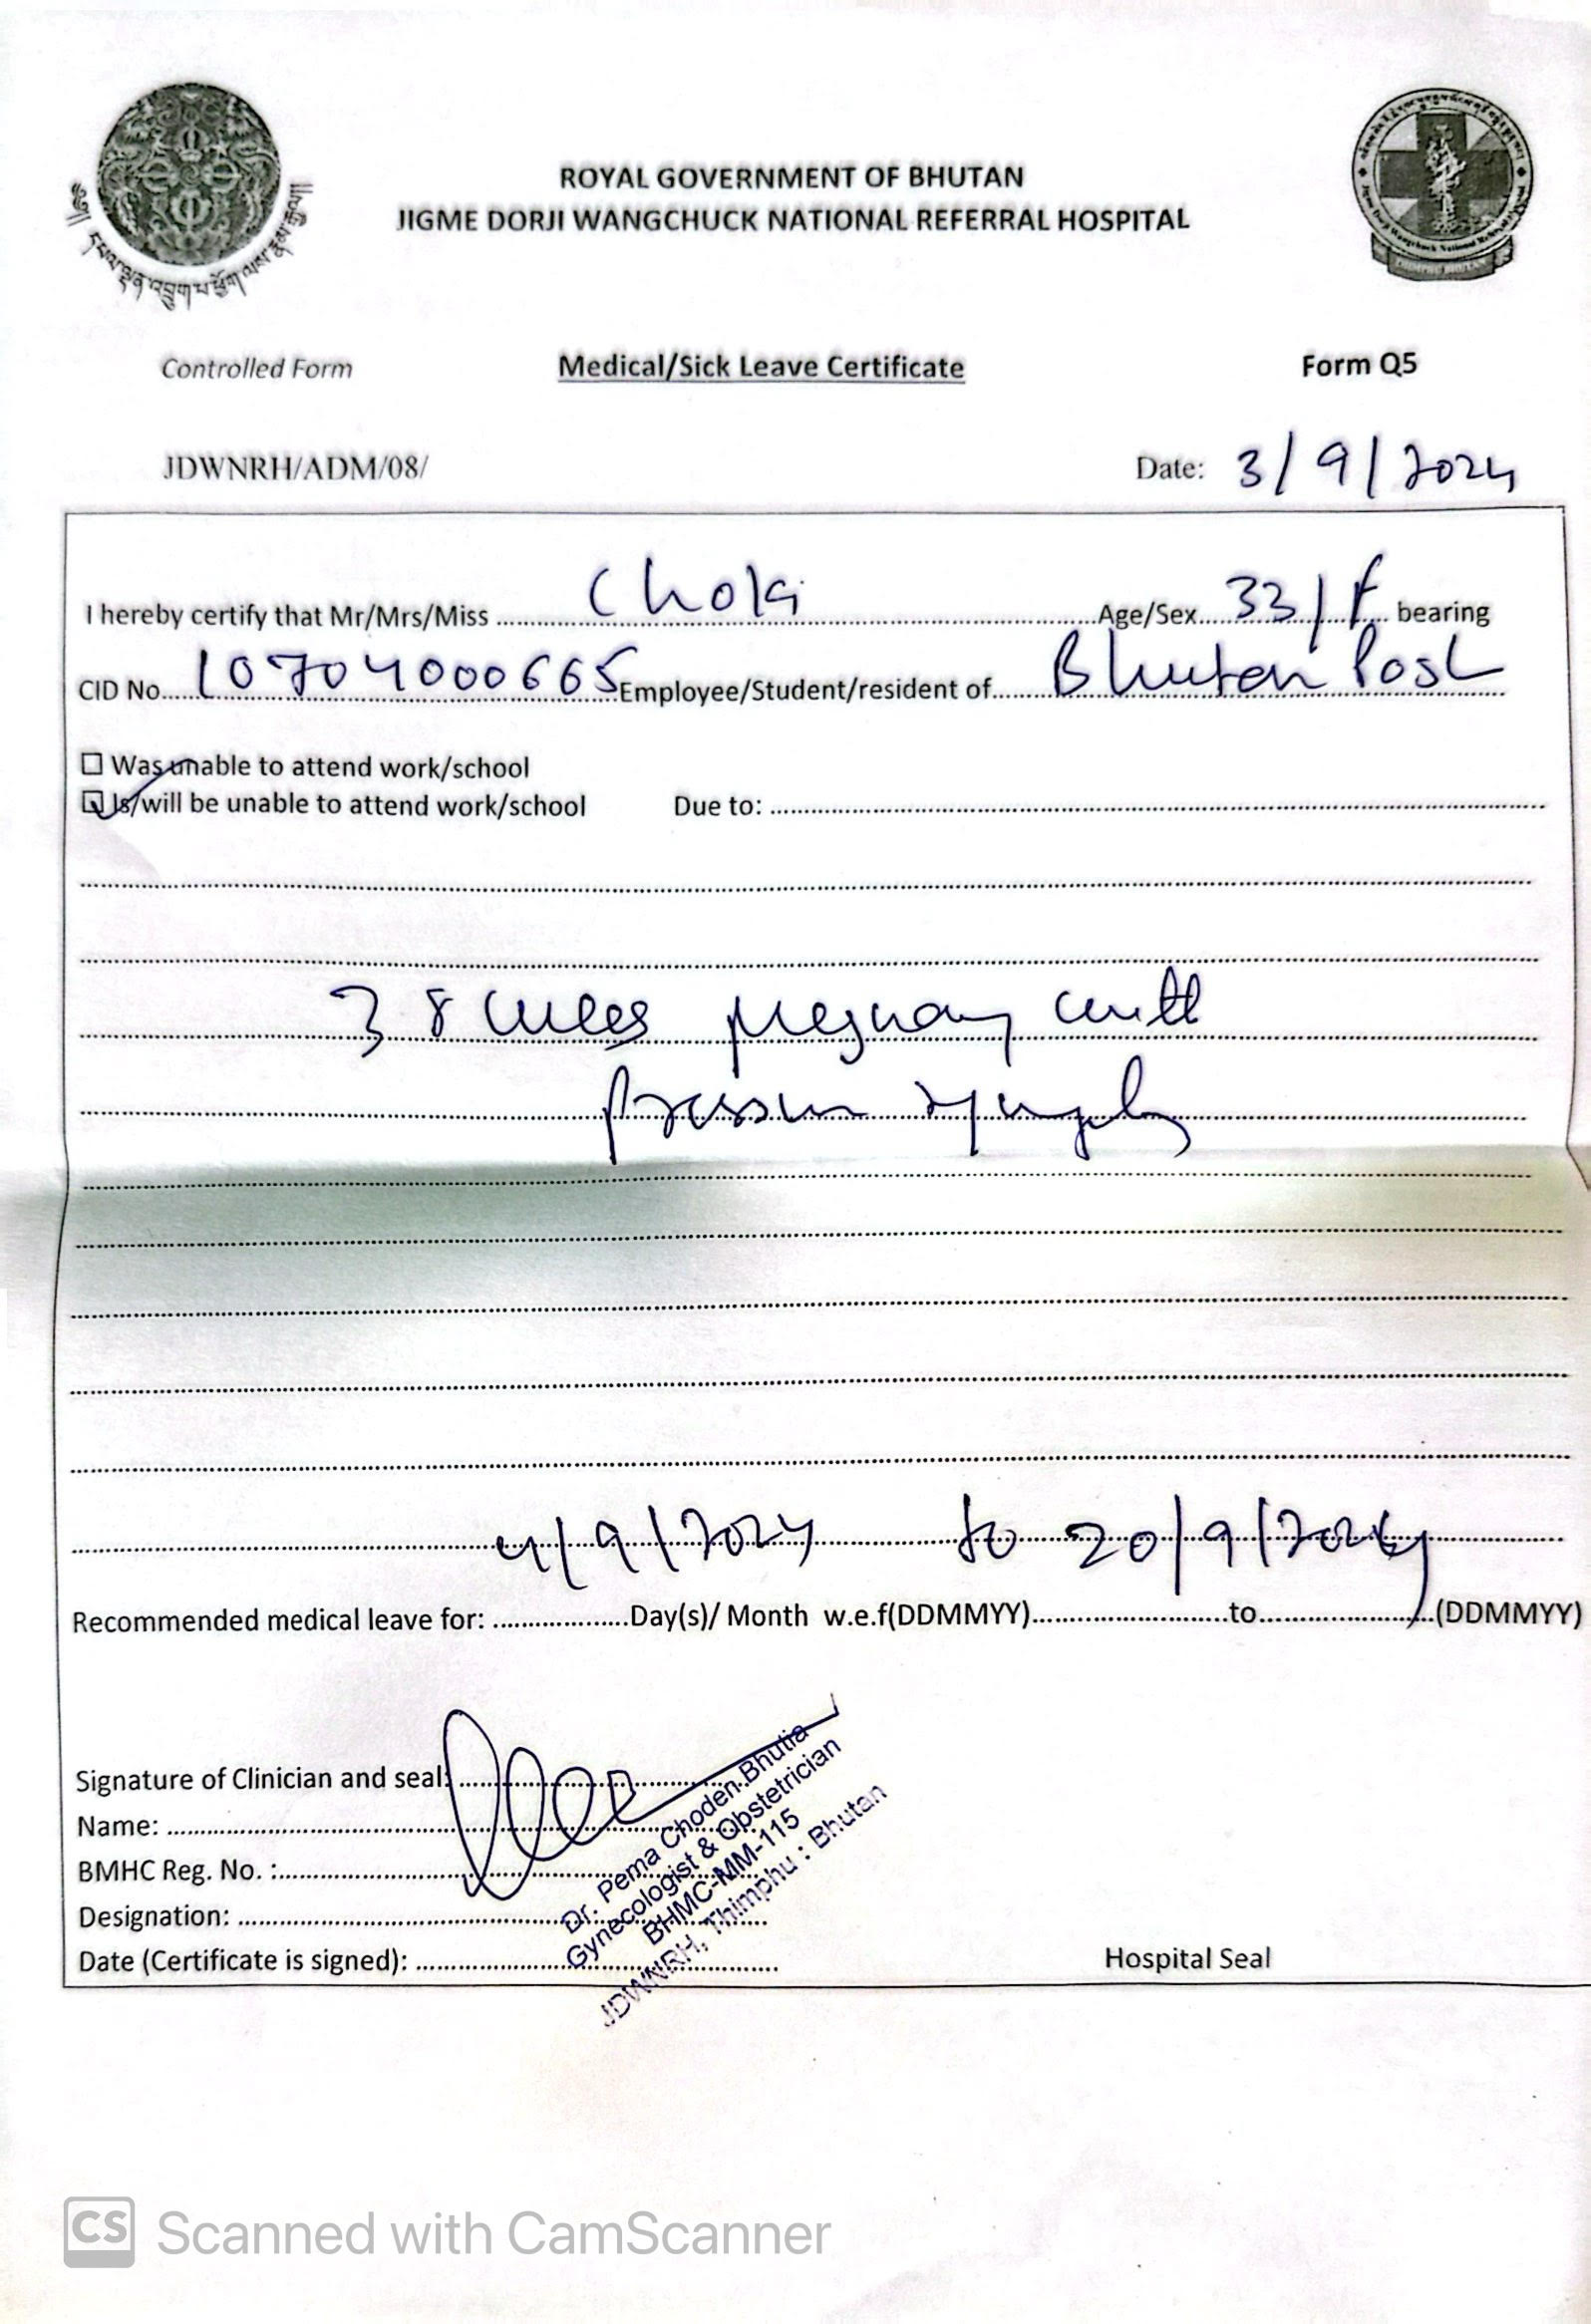 ROYAL GOVERNMENT OF BHUTAN
JIGME DORJI WANGCHUCK NATIONAL REFERRAL HOSPITAL
Controlled Form Medical/Sick Leave Certificate Form Q5
JDWNRH/ADM/08/ Date: 3/9/2024
I hereby certify that Mr/Mrs/Miss ........ Choki ........ Age/Sex.... 33/F .... bearing
CID No.... 10704000665 Employee/Student/resident of.... Bhutan Post
☐ Was unable to attend work/school
☑ Is/will be unable to attend work/school Due to: ........
38 pregnancy with
4/9/2024 to 20/9/2024
Recommended medical leave for: ........Day(s)/ Month w.e.f(DDMMYY)........to........(DDMMYY)
Signature of Clinician and seal: ........
Name: ........
BMHC Reg. No. :........
Designation: ........
Date (Certificate is signed): ........
Dr. Pema Choden Bhutia
Gynecologist & Obstetrician
BHMC-MM-115
JDWNRH, Thimphu : Bhutan
Hospital Seal
CS Scanned with CamScanner